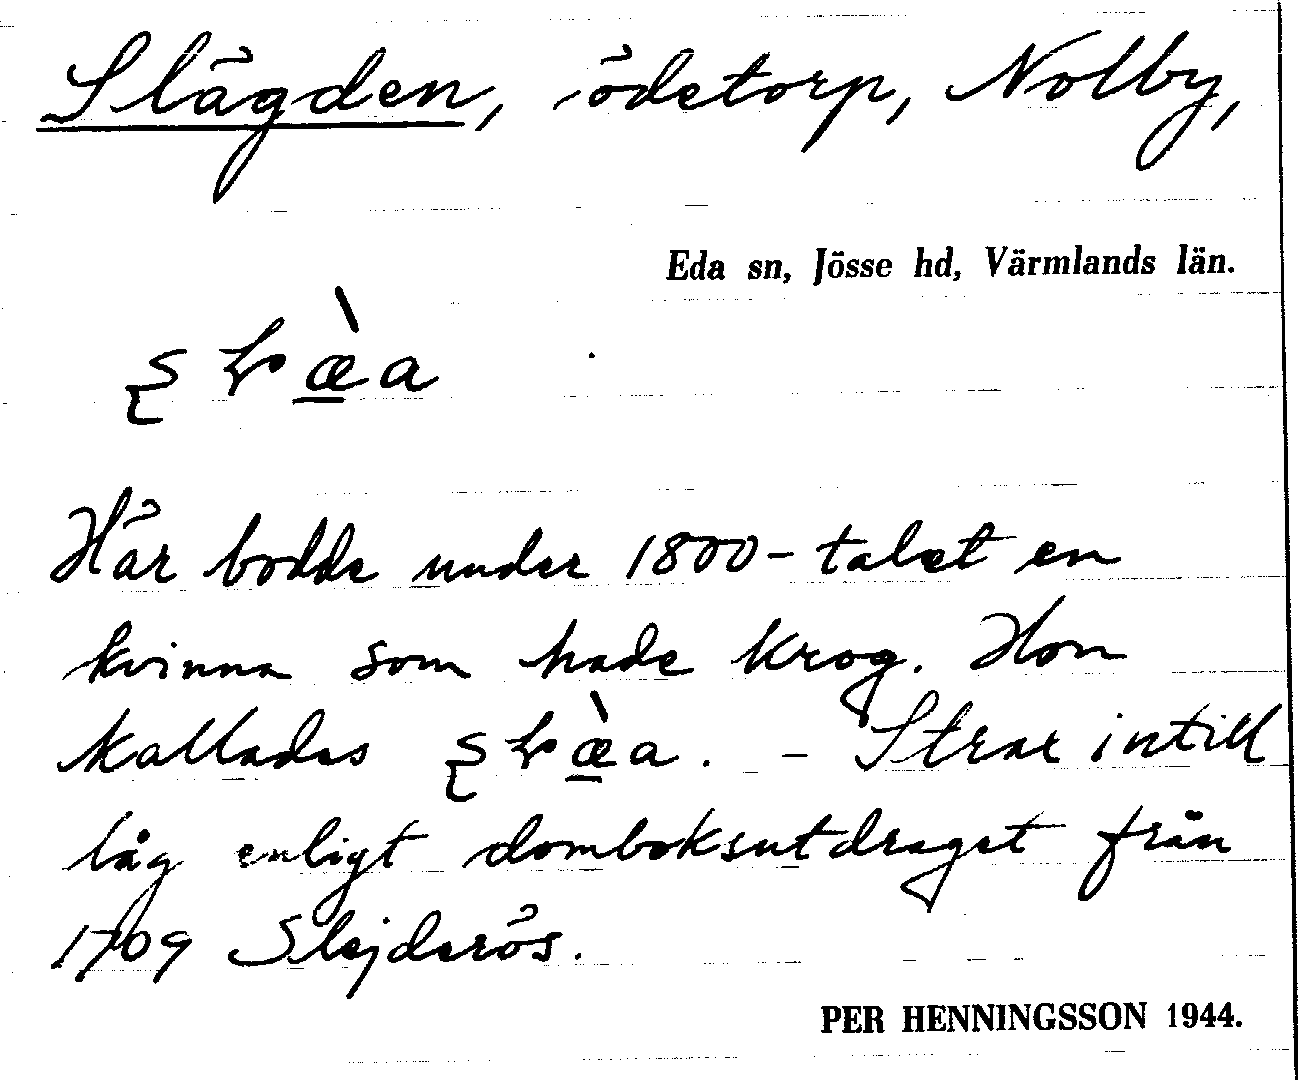 Slägden, ödetorp, Nolby,
Eda sn, Jösse hd, Värmlands län.
Här bodde under 1800-talet en
kvinna som hade krog. Hon
kallades . – Strax intill
låg enligt domboksutdraget från
1709 Slejderös.
PER HENNINGSSON 1944.